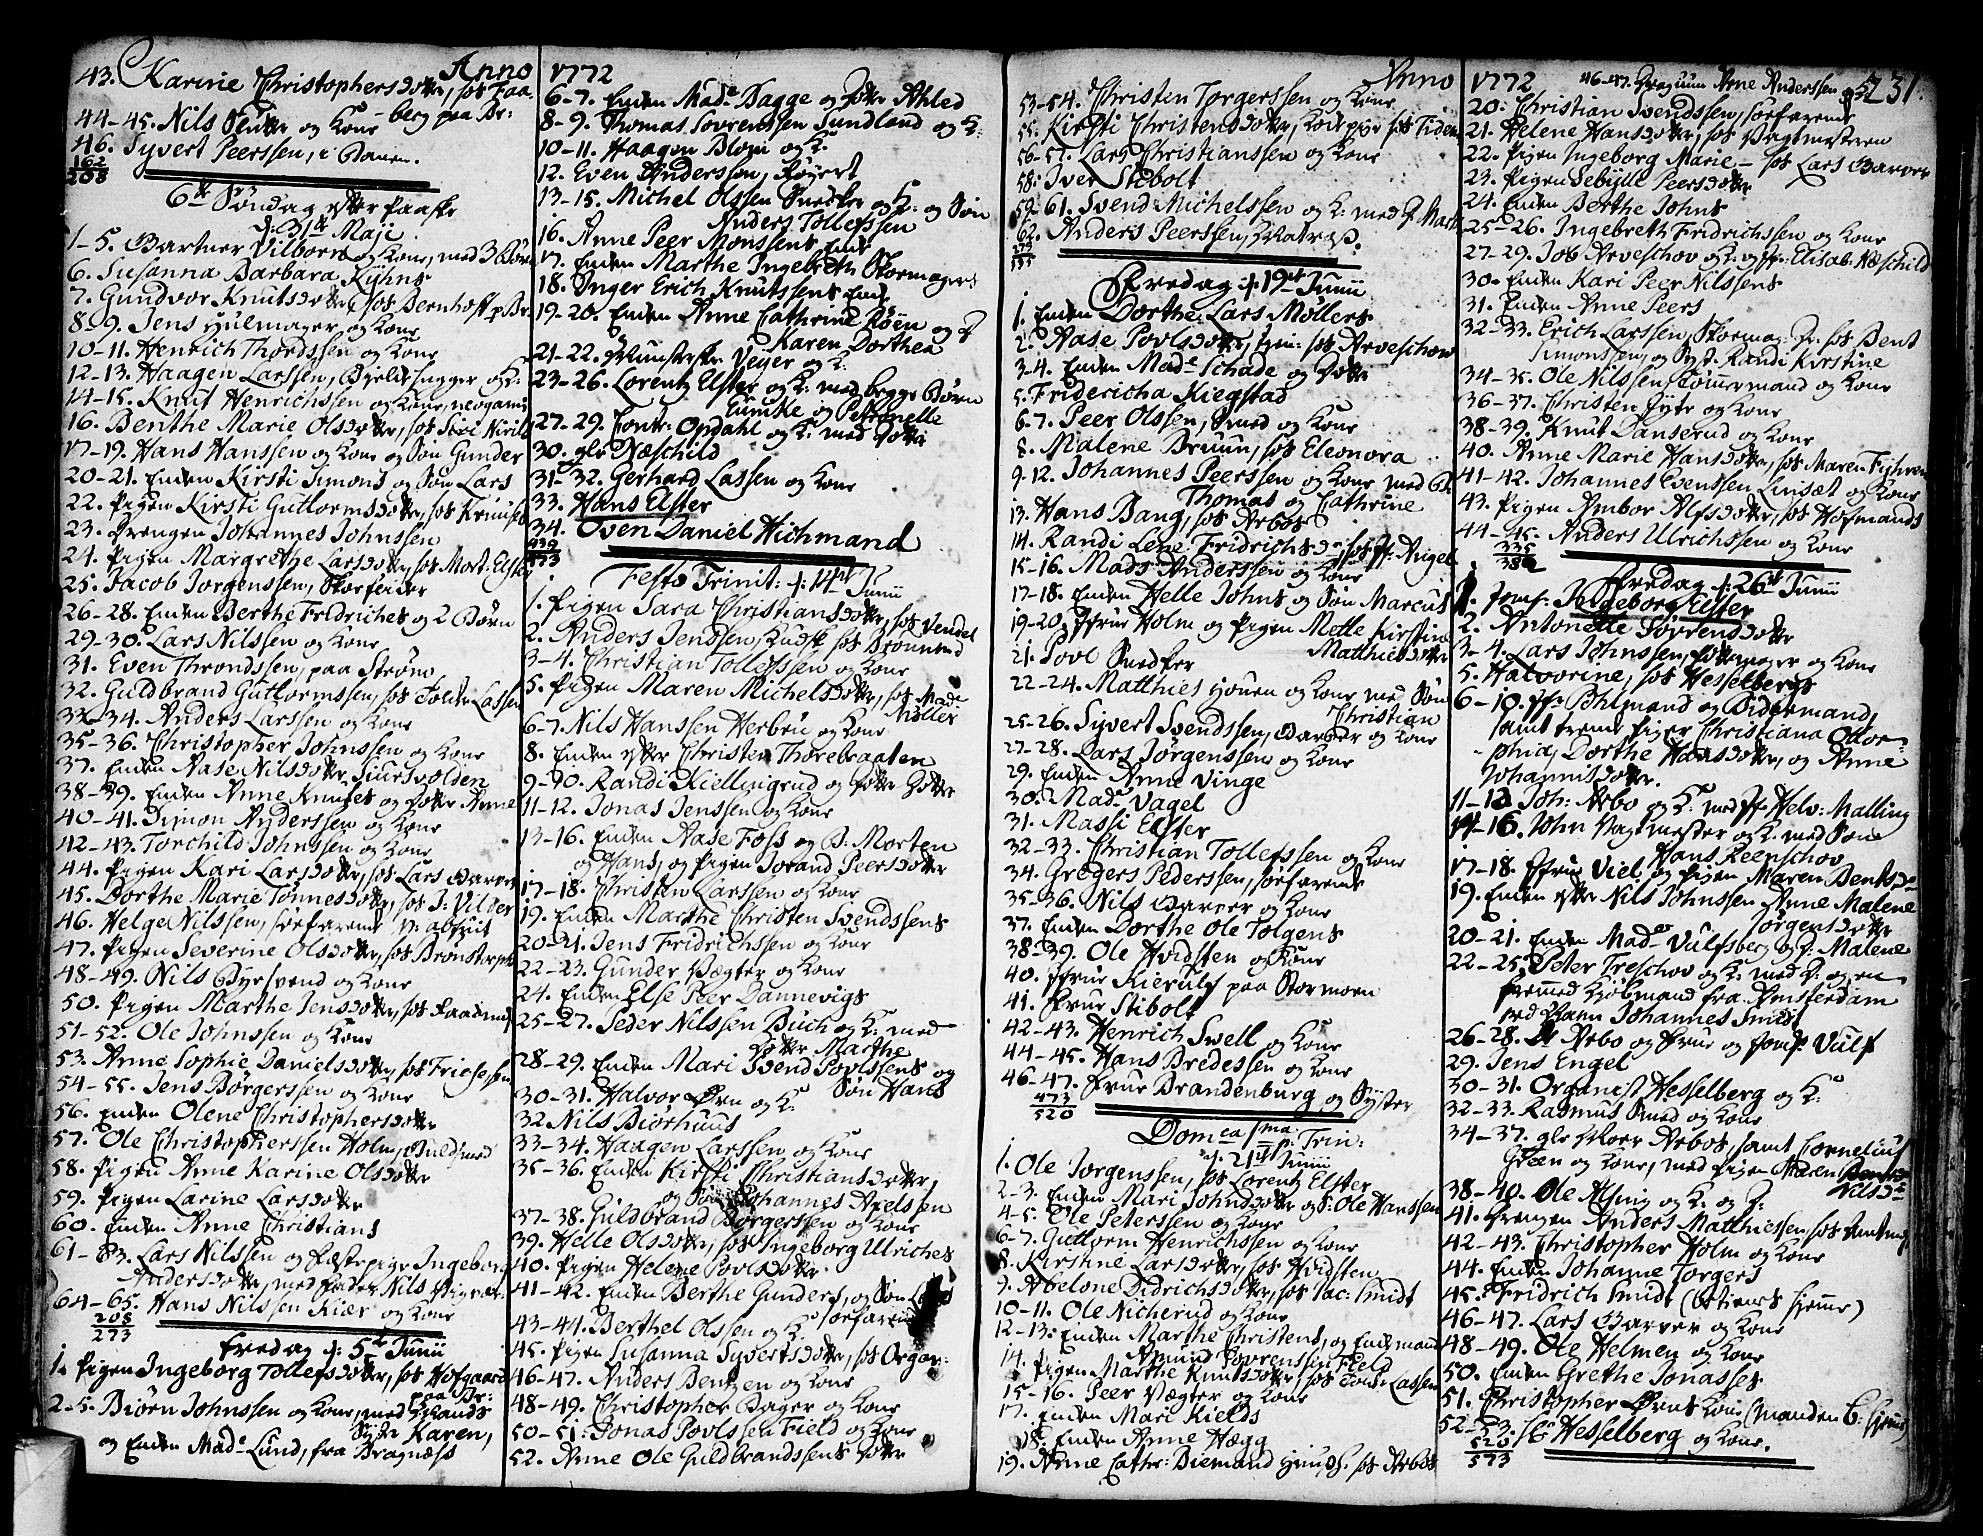 Anno
43. Karine Christophersdotter, hos Faa-
berg paa Br:
44-45. Nils und Kone
46. Syvert Peerssen, i
162
208
6te Søndag efter Paaske
d. 31te Maji
1-5. Vilborn og Kone, med 3 Børn
6. Susanna Barbara Kyhns
7. Gundvor Knutsdotter, hos Bernhoft p. Br.
8-9. Jens Hiulmager og Kone
10-11. Henrich Thordssen og Kone
12-13. Haagen Larssen, og K:
14-15. Knut Henrichssen og Kone, neogami
16. Benthe Marie Olsdotter, hos
17-19. Hans Hanssen og Kone og Søn Gunder
20-21. Enken Kirsti Simons og Søn Lars
22. Pigen Kirsti Guttormsdotter, hos
23. Drengen Johannes Johnssen
24. Pigen Margrethe Larsdotter, hos Mort: Elster
25. Jacob Jorgenssen, Skorfeier
26-28. Enken Berthe Fridriches og 2 Børn
29-30. Lars Nilssen og Kone
31. Even Throndssen, paa Strøm
32. Guldbrand Guttormssen, hos Lassen
33-34. Anders Larssen og Kone
35-36. Christopher Johnssen og Kone
37. Enken Aase Nilsdotter, Siursvolden
38-39. Enken Anne Knutses og Dotter Anne
40-41. Simon Anderssen og Kone
42-43. Torchild Johnssen og Kone
44. Pigen Kari Larsdotter, hos Lars Garver
45. Dorthe Marie Tønnesdotter, hos J: Vilter
46. Helge Nilssen, søefarende
47. Pigen Severine Olsdotter, hos
48-49. Nils Byesvend og Kone
50. Pigen Marthe Jensdotter, hos
51-52. Ole Johnssen og Kone
53. Anne Sophie Danielsdotter, hos
54-55. Jens Børgerssen og Kone
56. Enken Olene Christophersdotter
57. Ole Christopherssen Holm, Guldsmed
58. Pigen Anne Karine Olsdotter
59. Pigen Larine Larsdotter
60. Enken Anne Christians
61-63. Lars Nilssen og Fæstepige Ingebor
Andersdotter, med Fader Nils
64-65. Hans Nilssen Kier og Kone
208
273
Fredag d. 5te Junii
1. Pigen Ingeborg Tollefsdotter, hos Hofgaard
paa Br:
2-5. Biørn Johnssen og Kone, med Mands
Syster Karen,
og Enken Made Lund, fra Bragnæss
1772
6-7. Enken Made Bagge og Dotter Ahled
8-9. Thomas Sovrenssen Sundland og K:
10-11. Haagen Blom og K.
12. Even Anderssen, Røyert
13-15. Michel Olssen Snedker og K: og Søn
Anders Tollefssen
16. Anne Peer Monsens Enke
17. Enken Marthe Ingebreth Skormagers
18. Inger Erich Knutssens Enke
19-20. Enken Anne Cathrine Røien og D
Karen Dorthea
21-22. Veyer og K:
23-26. Lorentz Elster og K: med begge Børn
Eunike og Petronelle
27-29. Contr: Opdahl og K: med Dotter
30. Næschild
31-32. Gerhard Lassen og Kone
33. Hans Elster
34. Oven Daniel Hichmand
439
473
Festo Trinit: d. 14de Junii
1. Pigen Sara Christiansdotter, hos Vendel
2. Anders Jenssen, hos Brønlund
3-4. Christian Tollefssen og Kone
5. Pigen Maren Michelsdotter, hos Made
Møller
6-7. Nils Hanssen Herbru og Kone
8. Enken efter Christen Thorebraaten
9-10. Randi Kiellingrud og Dotter Gitte
11-12. Jonas Jenssen og Kone
13-16. Enken Aase Foss og B: Morten
og Hans, og Pigen Jorand Peersdotter
17-18. Christen Larssen og Kone
19. Enken Marthe Christen Svendssens
20-21. Jens Fridrichssen og Kone
22-23. Gunder Vægter og Kone
24. Enken Else Peer Dannevigs
25-27. Peder Nilssen Buch og K: med
Dotter Marthe
28-29. Enken Mari Svend Povlssens og
Søn Hans
30-31. Halvor Øren og K:
32 Nils Biørhuus
33-34. Haagen Larssen og Kone
35-36. Enken Kirsti Christiansdotter,
og Søn Johannes Axelsen
37-38. Guldbrand Børgerssen og Kone
39. Helle Olsdotter, hos Ingeborg Ulriches
40. Pigen Helene Povlsdotter
41-42. Enken Berthe Gunders, og Søn
søefarende
43-44. Berthel Olssen og K:
45. Pigen Susanna Syvertsdotter, hos Organ:
46-47. Anders Bentzen og Kone
48-49. Christopher Bager og Kone
50-51. Jonas Povlssen Field og Kone
52. Anne Ole Guldbrandssens Dotter
Anno
53-54. Christen Torgerssen og Kone
55. Kirsti Christensdotter, hos
56-57. Lars Christianssen og Kone
58. Iver Stibolt
59-61. Svend Michelssen og K: med D. Marthe
62. Anders Peerssen, Matros.
Fredag d. 19de Junii
1. Enken Dorthe Lars Møllers
2. Aase Povlsdotter, hos Arveschow
3-4. Enken Made Schade og Dotter
5. Fridericha Kiegstad
6-7. Peer Olssen, Smed og Kone
8. Malene Bruun, hos Eleonora
9-12. Johannes Peerssen og Kone med B.
Thomas og Cathrine
13. Hans Bang, hos Arboe
14. Randi Lene Fridrichsdr hos Angel
15-16. Mads Anderssen og Kone
17-18. Enken Helle Johns og Søn Marcus
19-20. Frue Holm og Pigen Mette Kirstine
Matthiesdotter
21. Povl Snedker
22-24. Matthies Houen og Kone med Søn
Christian
25-26. Syvert Svendssen, Garver og Kone
27-28. Lars Jørgenssen og Kone
29. Enken Anne Vinge
30. Made Vagel
31. Massi Elster
32-33. Christian Tollefssen og Kone
34. Gregers Pederssen, søefarende
35-36. Nils Garver og Kone
37. Enken Dorthe Ole Tolgens
38-39. Ole Hvidsten og Kone
40. Frue Kierulf paa Stormoen
41. Frue Stibolt
42-43. Henrich Swell og Kone
44-45. Hans Bredessen og Kone
46-47. Frue Brandenburg og Syster
473
520
Domca 1ma p. Trin:
d. 21de Junii
1. Ole Jorgenssen, hos Lorentz Elster
2-3. Enken Mari Johnsdotter og S: Ole Hanssen
4-5. Ole Peterssen og Kone
6-7. Guttorm Henrichssen og Kone
8. Kirstine Larsdotter, hos Hvidsten
9. Abelone Didrichsdotter, hos Jac: Smidt
10-11. Ole Nicherud og Kone
12-13. Enken Marthe Christens, og Enkemand
Amund Sovrenssen Field
14. Pigen Marthe Knutsdotter, hos Lassen
15-16. Peer Vægter og Kone
17. Enken Mari Kields
18. Enken Anne Hægg
19. Anne Cathr: Biemand hos Arbos
1772
46-47. Arne Anderssen og
231.
20. Christian Svendssen, søefarende
21. Helene Hansdotter, hos Vagtmesteren
22. Pigen Ingeborg Marie - hos Lars Garver
23. Pigen Sebylle Peersdotter
24. Enken Berthe Johns
25-26. Ingebreth Fridrichssen og Kone
27-29. Job Arveschov og K: og Jfr: Elisab: Næschild
30. Enken Kari Peer Nilssens
31. Enken Anne Peers
32-33. Erich Larssen, Skormag: Dr. hos Bent
Simonssen, og Syst. Randi Kirstine
34-35. Ole Nilssen, Tømmermand og Kone
36-37. Christen Jyte og Kone
38-39. Knut Danserud og Kone
40. Anne Marie Hansdotter, hos Maren
41-42. Johannes Evenssen Linsæt og Kone
43. Pigen Ambor Alfsdotter, hos Hofmands
44-45. Anders Ulrichssen og Kone
335
382
Fredag d. 26de Junii
1. Jomf: Ingeborg Elster
2. Antonette Sovrensdotter
3-4. Lars Johnssen, og Kone
5. Halvorine, hos Hesselbergs
6-10. Jfr: Pihlmand og Bidermand,
samt trende Piger Christiana Ottor-
phia, Dorthe Hansdotter, og Anne
Johannisdotter.
11-13. Joh: Arbo og K: med Jfr Helv: Malling
14-16. John Vagtmester og K. med Søn
Hans Reenschov
17-18. Frue Viel og Pigen Maren Bentsdr
19. Enken efter Nils Johnssen Anne Malene
Jørgensdotter
20-21. Enken Made Vulfsberg og D. Malene
22-25. Peter Treschov og K: med S. og en
fremmed Kiøbmand fra Amsterdam
ved Navn Johannes Smidt
26-28. Arbo og Frue og Jomf. Vulf
29. Jens Engel
30-31. Organist Hesselberg og K:
32-33. Rasmus Smed og Kone
34-37. gle Moer Arbos, samt Cornelius
Green og Kone, med Pigen Maren
Nilsdr
38-40. Ole Alsing og K: og D:
41. Drengen Anders Matthiessen, hos
42-43. Christopher Holm og Kone
44. Enken Johanne Torgers
45. Fridrich Smidt (betienes hjemme)
46-47. Lars Garver og Kone
48-49. Ole Helmen og Kone
50. Enken Grethe Jonasses
51. Christopher Ørens Kone (manden b: hjemme)
52-53. Hesselberg og Kone.
520
573